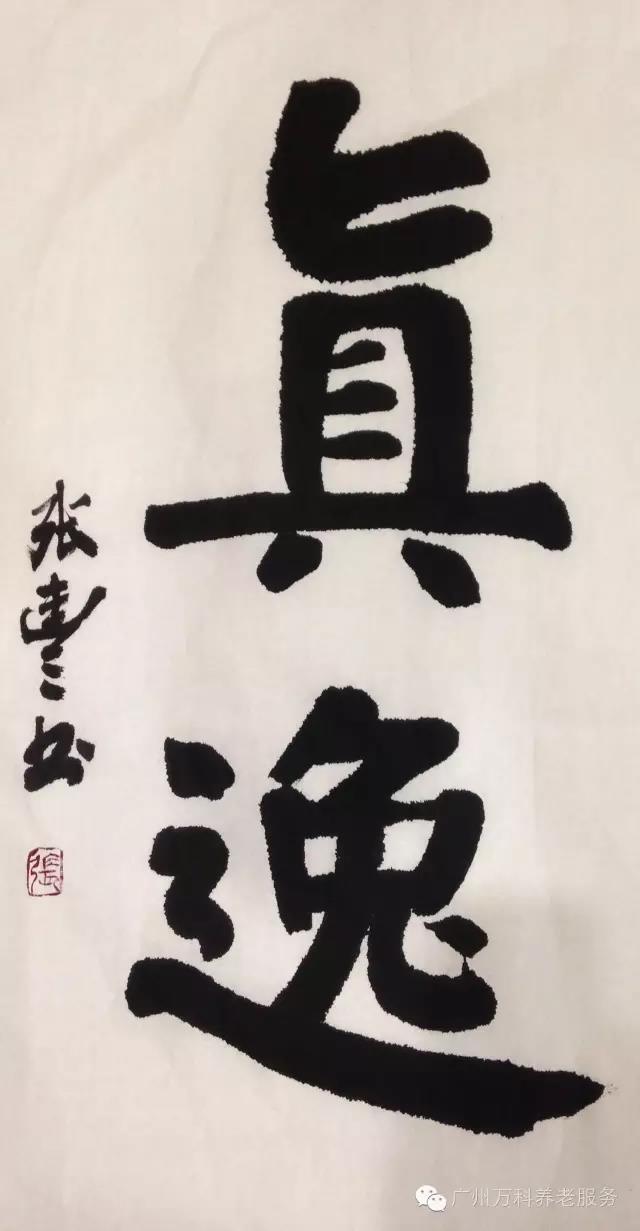 眞逸
张书
張
广州万科养老服务